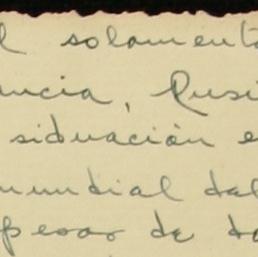 l solament
uncia, Rusi
situación e
mundial del
pesar de to